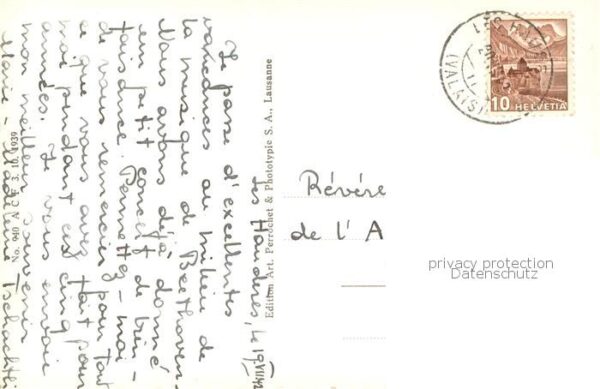 Les Haudères, le 19.VII.42
Je passe d'excellentes
vacances au milieu de
la musique de Beethoven
Nous avons déjà donné
un petit concert de bien-
faisance. Permettez-moi
de vous remercier pour tout
ce que vous avez fait pour
moi pendant ces cinq
années. Je vous envoie
mon meilleur souvenir
Marie-Madeleine Tschachtli
No. 940 A C F 3. 10. 1939
Edition Art. Perrochet & Phototypie S. A., Lausanne
Révére
de l'A
LES HAUDÈRES
(VALAIS)
10 HELVETIA
privacy protection
Datenschutz